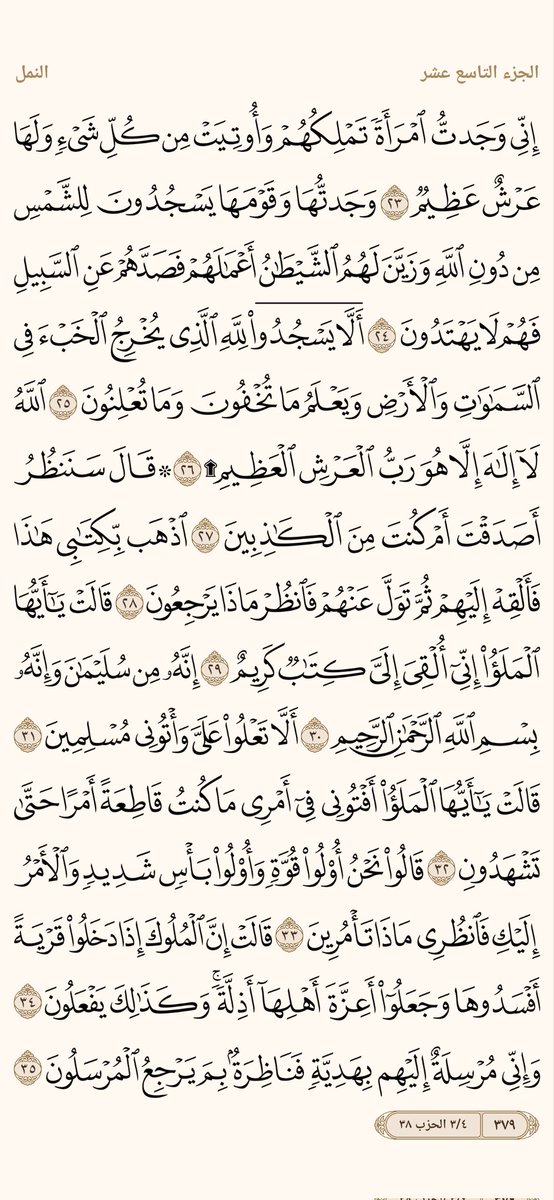 الجزء التاسع عشر
النمل
إِنِّي وَجَدتُّ ٱمْرَأَةً تَمْلِكُهُمْ وَأُوتِيَتْ مِن كُلِّ شَىْءٍ وَلَهَا
عَرْشٌ عَظِيمٌ ٢٣ وَجَدتُّهَا وَقَوْمَهَا يَسْجُدُونَ لِلشَّمْسِ
مِن دُونِ ٱللَّهِ وَزَيَّنَ لَهُمُ ٱلشَّيْطَٰنُ أَعْمَٰلَهُمْ فَصَدَّهُمْ عَنِ ٱلسَّبِيلِ
فَهُمْ لَا يَهْتَدُونَ ٢٤ أَلَّا يَسْجُدُوا۟ لِلَّهِ ٱلَّذِى يُخْرِجُ ٱلْخَبْءَ فِى
ٱلسَّمَٰوَٰتِ وَٱلْأَرْضِ وَيَعْلَمُ مَا تُخْفُونَ وَمَا تُعْلِنُونَ ٢٥ ٱللَّهُ
لَآ إِلَٰهَ إِلَّا هُوَ رَبُّ ٱلْعَرْشِ ٱلْعَظِيمِ ۩ ٢٦ ۞ قَالَ سَنَنظُرُ
أَصَدَقْتَ أَمْ كُنتَ مِنَ ٱلْكَٰذِبِينَ ٢٧ ٱذْهَب بِّكِتَٰبِى هَٰذَا
فَأَلْقِهْ إِلَيْهِمْ ثُمَّ تَوَلَّ عَنْهُمْ فَٱنظُرْ مَاذَا يَرْجِعُونَ ٢٨ قَالَتْ يَٰٓأَيُّهَا
ٱلْمَلَؤُا۟ إِنِّىٓ أُلْقِىَ إِلَىَّ كِتَٰبٌ كَرِيمٌ ٢٩ إِنَّهُۥ مِن سُلَيْمَٰنَ وَإِنَّهُۥ
بِسْمِ ٱللَّهِ ٱلرَّحْمَٰنِ ٱلرَّحِيمِ ٣٠ أَلَّا تَعْلُوا۟ عَلَىَّ وَأْتُونِى مُسْلِمِينَ ٣١
قَالَتْ يَٰٓأَيُّهَا ٱلْمَلَؤُا۟ أَفْتُونِى فِىٓ أَمْرِى مَا كُنتُ قَاطِعَةً أَمْرًا حَتَّىٰ
تَشْهَدُونِ ٣٢ قَالُوا۟ نَحْنُ أُو۟لُوا۟ قُوَّةٍ وَأُو۟لُوا۟ بَأْسٍ شَدِيدٍ وَٱلْأَمْرُ
إِلَيْكِ فَٱنظُرِى مَاذَا تَأْمُرِينَ ٣٣ قَالَتْ إِنَّ ٱلْمُلُوكَ إِذَا دَخَلُوا۟ قَرْيَةً
أَفْسَدُوهَا وَجَعَلُوٓا۟ أَعِزَّةَ أَهْلِهَآ أَذِلَّةً ۚ وَكَذَٰلِكَ يَفْعَلُونَ ٣٤
وَإِنِّى مُرْسِلَةٌ إِلَيْهِم بِهَدِيَّةٍ فَنَاظِرَةٌۢ بِمَ يَرْجِعُ ٱلْمُرْسَلُونَ ٣٥
٣٧٩ ٣/٤ الحزب ٣٨